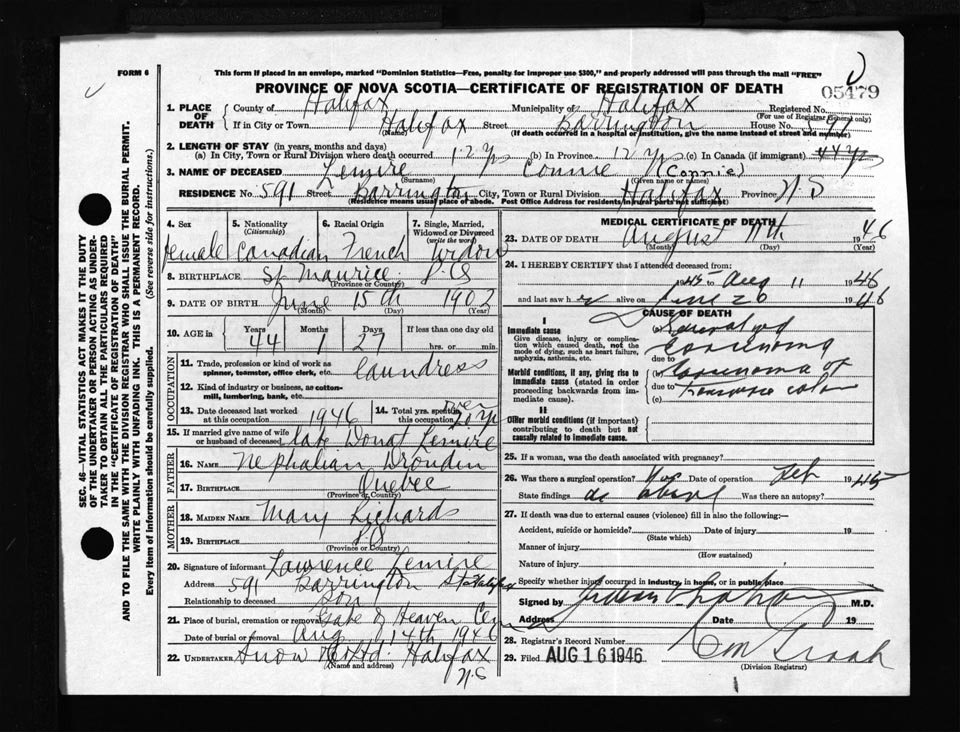 FORM 6
This form if placed in an envelope, marked "Dominion Statistics—Free, penalty for improper use $300," and properly addressed will pass through the mail "FREE"
PROVINCE OF NOVA SCOTIA—CERTIFICATE OF REGISTRATION OF DEATH
05479
SEC. 46—VITAL STATISTICS ACT MAKES IT THE DUTY
OF THE UNDERTAKER OR PERSON ACTING AS UNDER-
TAKER TO OBTAIN ALL THE PARTICULARS REQUIRED
IN THE "CERTIFICATE OF REGISTRATION OF DEATH"
AND TO FILE THE SAME WITH THE DIVISION REGISTRAR WHO SHALL ISSUE THE BURIAL PERMIT.
WRITE PLAINLY WITH UNFADING INK. THIS IS A PERMANENT RECORD.
Every item of information should be carefully supplied. (See reverse side for instructions.)
1. PLACE OF DEATH County of Halifax Municipality of Halifax Registered No.
(For use of Registrar General only)
If in City or Town Halifax Street Barrington House No. 591
(Name) (If death occurred in a hospital or institution, give the name instead of street and number)
2. LENGTH OF STAY (in years, months and days)
(a) In City, Town or Rural Division where death occurred 12 yrs (b) In Province 12 yrs (c) In Canada (if immigrant) 44 yrs
3. NAME OF DECEASED Lemire Connie (Connie)
(Surname) (Given name or names)
RESIDENCE No. 591 Street Barrington City, Town or Rural Division Halifax Province N.S
(Residence means usual place of abode. Post Office Address for residents in rural parts not sufficient)
4. Sex
female
5. Nationality
(Citizenship)
Canadian
6. Racial Origin
French
7. Single, Married,
Widowed or Divorced
(write the word)
widow
8. BIRTHPLACE St Maurice P.Q
(Province or Country)
9. DATE OF BIRTH June 15th 1902
(Month) (Day) (Year)
10. AGE in Years 44 Months 1 Days 27 If less than one day old
hrs. or min.
OCCUPATION
11. Trade, profession or kind of work as
spinner, teamster, office clerk, etc. Laundress
12. Kind of industry or business, as cotton-
mill, lumbering, bank, etc.
13. Date deceased last worked
at this occupation 1946
14. Total yrs. spent in
this occupation over 20 yrs
15. If married give name of wife
or husband of deceased late Donat Lemire
FATHER
16. NAME Nephalian Droudin
17. BIRTHPLACE Quebec
(Province or Country)
MOTHER
18. MAIDEN NAME Mary Richards
19. BIRTHPLACE P.Q
(Province or Country)
20. Signature of informant Lawrence Lemire
Address 591 Barrington St Halifax
Relationship to deceased Son
21. Place of burial, cremation or removal Gate of Heaven Cem
Date of burial or removal Aug 14th 1946
22. UNDERTAKER Snow & Co Ltd. Halifax
(Name and address)
N.S
MEDICAL CERTIFICATE OF DEATH
23. DATE OF DEATH August 11th 1946
(Month) (Day) (Year)
24. I HEREBY CERTIFY that I attended deceased from:
1945 to Aug 11 1946
and last saw her alive on June 26 1946
CAUSE OF DEATH
I
Immediate cause
Give disease, injury or complica-
tion which caused death, not the
mode of dying, such as heart failure,
asphyxia, asthenia, etc.
(a) Generalized
Carcinoma
due to
Morbid conditions, if any, giving rise to
immediate cause (stated in order
proceeding backwards from im-
mediate cause).
(b) Carcinoma of
due to transverse colon
(c)
II
Other morbid conditions (if important)
contributing to death but not
causally related to immediate cause.
25. If a woman, was the death associated with pregnancy?
26. Was there a surgical operation? Yes Date of operation Feb 1945
State findings as above Was there an autopsy?
27. If death was due to external causes (violence) fill in also the following:—
Accident, suicide or homicide? Date of injury 19
(State which)
Manner of injury
(How sustained)
Nature of injury
Specify whether injury occurred in industry, in home, or in public place
Signed by M.D.
Address Date 19
28. Registrar's Record Number
29. Filed AUG 16 1946
(Division Registrar)